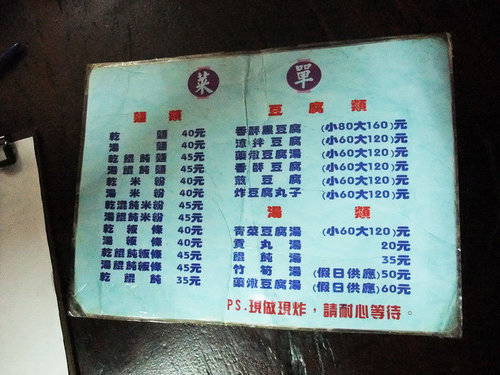 菜單
麵類
乾麵 40元
湯麵 40元
乾餛飩麵 45元
湯餛飩麵 45元
乾米粉 40元
湯米粉 40元
乾混飩米粉 45元
湯餛飩米粉 45元
乾粄條 40元
湯粄條 40元
乾餛飩粄條 45元
湯餛飩粄條 45元
乾餛飩 35元
豆腐類
香酥黑豆腐 (小80大160)元
涼拌豆腐 (小60大120)元
藥燉豆腐湯 (小60大120)元
香酥豆腐 (小60大120)元
煎豆腐 (小60大120)元
炸豆腐丸子 (小60大120)元
湯類
青菜豆腐湯 (小60大120)元
貢丸湯 20元
餛飩湯 35元
竹筍湯 (假日供應)50元
藥燉豆腐湯 (假日供應)60元
PS.現做現炸，請耐心等待。